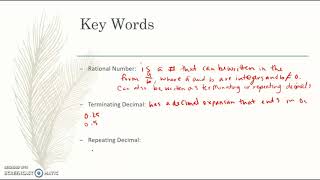 Key Words
– Rational Number: is a # that can be written in the
form a/b, where a and b are integers and b≠0.
Can also be written as terminating or repeating decimals
– Terminating Decimal: has a decimal expansion that ends in 0.
0.25
0.5
– Repeating Decimal:
RECORDED WITH
SCREENCAST MATIC